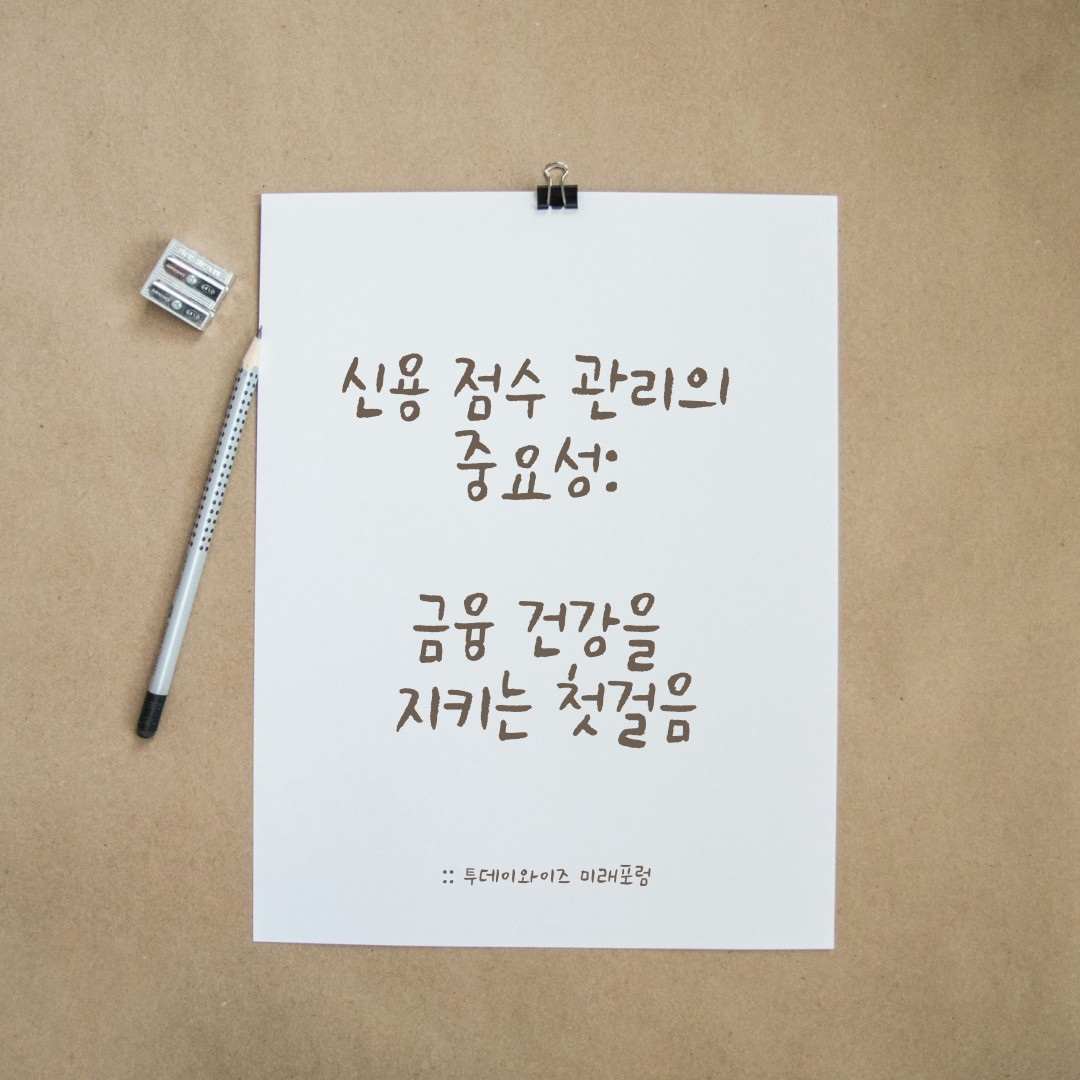 신용 점수 관리의
중요성:
금융 건강을
지키는 첫걸음
:: 투데이와이즈 미래포럼